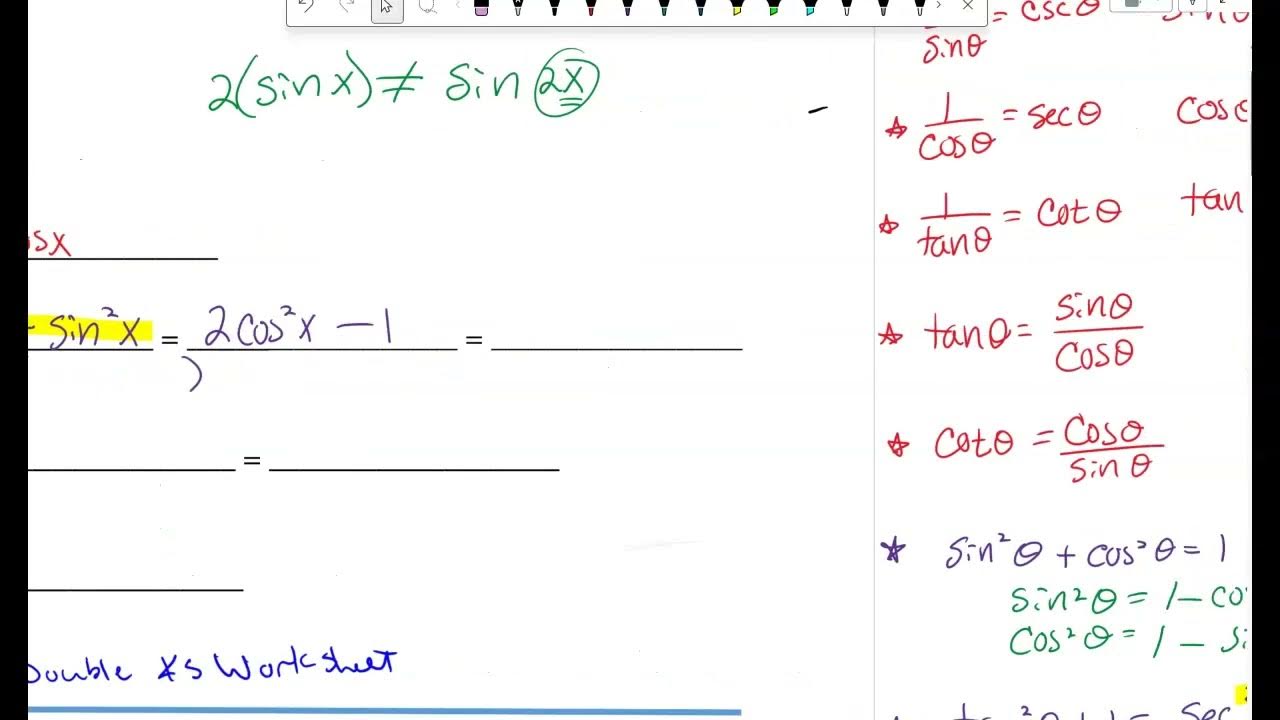 2(sin x) ≠ sin 2x
sx
- sin²x = 2cos²x - 1 =
)
=
Double ∡s Worksheet
= cscθ
sinθ
☆ 1/cosθ = secθ cos
☆ 1/tanθ = cotθ tan
☆ tanθ = sinθ/cosθ
☆ cotθ = cosθ/sinθ
☆ sin²θ + cos²θ = 1
sin²θ = 1 - co
cos²θ = 1 - si